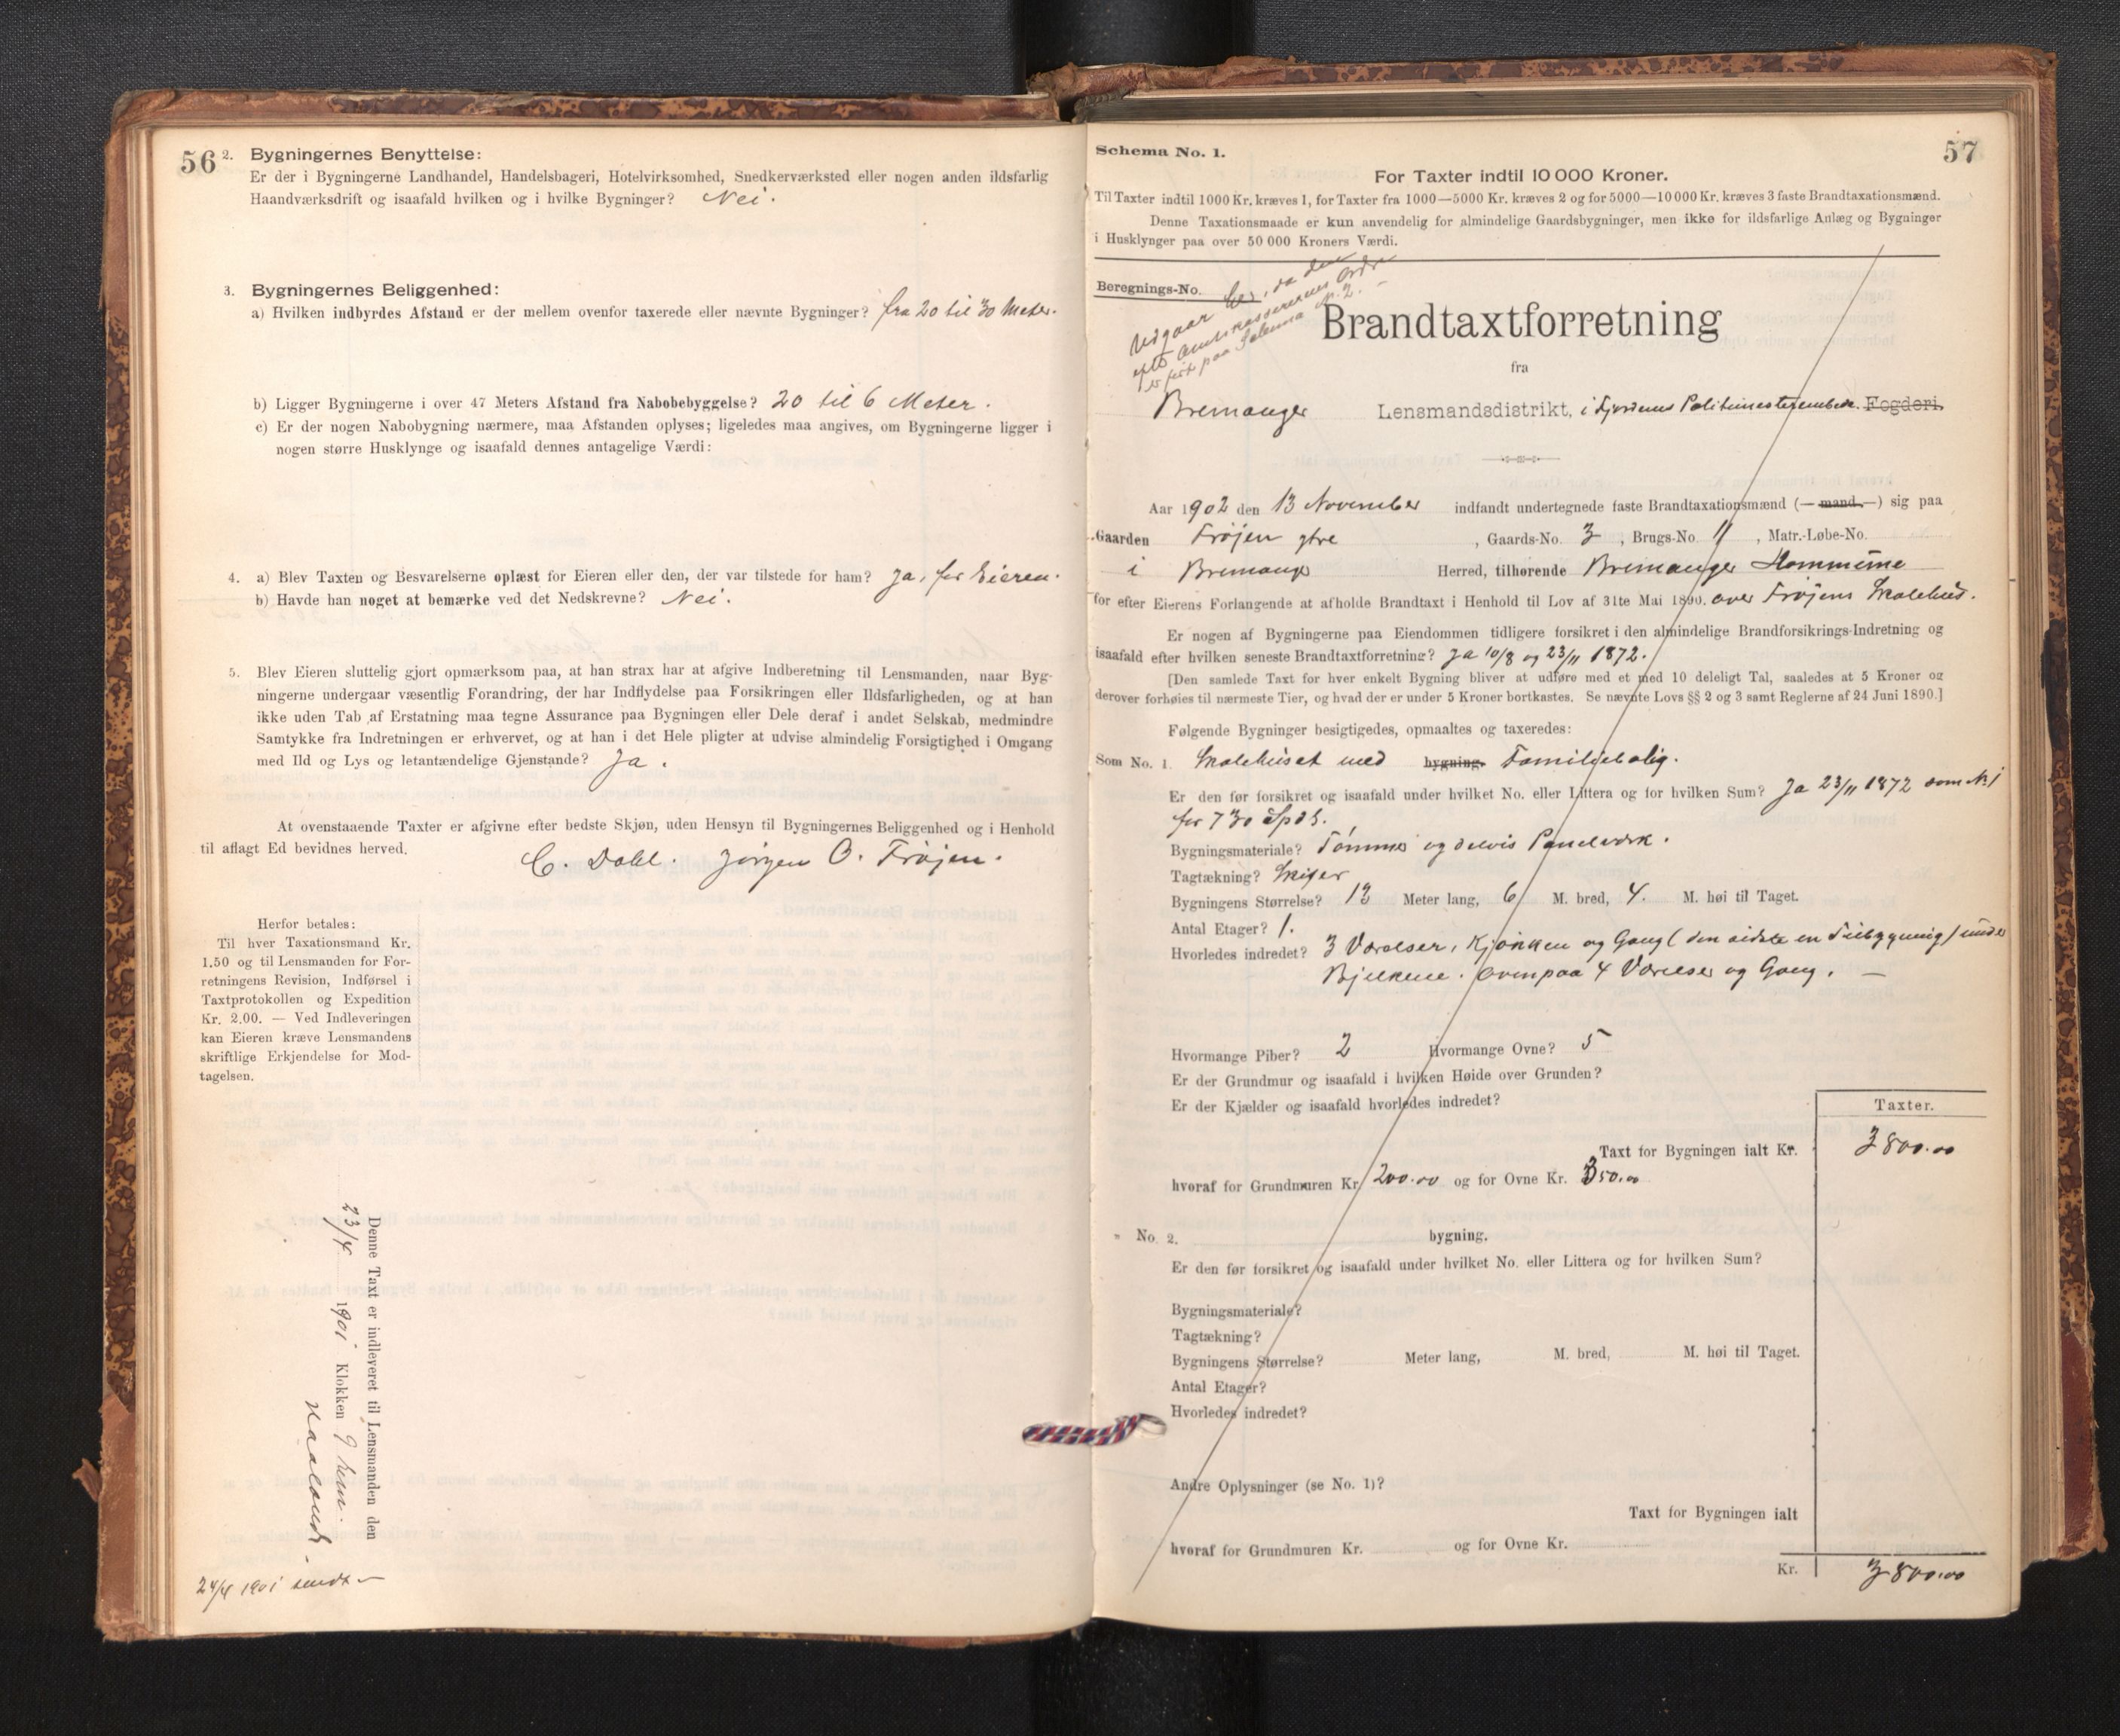 56
2. Bygningernes Benyttelse:
Er der i Bygningerne Landhandel, Handelsbageri, Hotelvirksomhed, Snedkerværksted eller nogen anden ildsfarlig
Haandværksdrift og isaafald hvilken og i hvilke Bygninger? Nei.
3. Bygningernes Beliggenhed:
a) Hvilken indbyrdes Afstand er der mellem ovenfor taxerede eller nævnte Bygninger? fra 20 til 30 Meter.
b) Ligger Bygningerne i over 47 Meters Afstand fra Nabobebyggelse? 20 til 6 Meter.
c) Er der nogen Nabobygning nærmere, maa Afstanden oplyses; ligeledes maa angives, om Bygningerne ligger i
nogen større Husklynge og isaafald dennes antagelige Værdi:
4. a) Blev Taxten og Besvarelserne oplæst for Eieren eller den, der var tilstede for ham? Ja, for Eieren.
b) Havde han noget at bemærke ved det Nedskrevne? Nei.
5. Blev Eieren sluttelig gjort opmærksom paa, at han strax har at afgive Indberetning til Lensmanden, naar Byg-
ningerne undergaar væsentlig Forandring, der har Indflydelse paa Forsikringen eller Ildsfarligheden, og at han
ikke uden Tab af Erstatning maa tegne Assurance paa Bygningen eller Dele deraf i andet Selskab, medmindre
Samtykke fra Indretningen er erhvervet, og at han i det Hele pligter at udvise almindelig Forsigtighed i Omgang
med Ild og Lys og letantændelige Gjenstande? Ja.
At ovenstaaende Taxter er afgivne efter bedste Skjøn, uden Hensyn til Bygningernes Beliggenhed og i Henhold
til aflagt Ed bevidnes herved.
C. Dahl. Jörgen O. Fröjen.
Herfor betales:
Til hver Taxationsmand Kr.
1.50 og til Lensmanden for For-
retningens Revision, Indførsel i
Taxtprotokollen og Expedition
Kr. 2.00. — Ved Indleveringen
kan Eieren kræve Lensmandens
skriftlige Erkjendelse for Mod-
tagelsen.
Denne Taxt er indleveret til Lensmanden den
23/4 1901 Klokken 9 fm.
24/4 1901 sendt —
Schema No. 1.
57
For Taxter indtil 10 000 Kroner.
Til Taxter indtil 1000 Kr. kræves 1, for Taxter fra 1000—5000 Kr. kræves 2 og for 5000—10000 Kr. kræves 3 faste Brandtaxationsmænd.
Denne Taxationsmaade er kun anvendelig for almindelige Gaardsbygninger, men ikke for ildsfarlige Anlæg og Bygninger
i Husklynger paa over 50 000 Kroners Værdi.
Beregnings-No.
Udgaar her, da den
efter Amtskassererens Ordre
er ført paa Schema N. 2. –
Brandtaxtforretning
fra
Bremanger Lensmandsdistrikt, i Fjordenes Politimesterembede. Fogderi.
Aar 1902 den 13 November indfandt undertegnede faste Brandtaxationsmænd (— mand —) sig paa
Gaarden Fröjen ytre, Gaards-No. 3, Brugs-No. 11, Matr.-Løbe-No.
i Bremanger Herred, tilhørende Bremanger Kommune
for efter Eierens Forlangende at afholde Brandtaxt i Henhold til Lov af 31te Mai 1890. over Fröjens Skolehus.
Er nogen af Bygningerne paa Eiendommen tidligere forsikret i den almindelige Brandforsikrings-Indretning og
isaafald efter hvilken seneste Brandtaxtforretning? Ja 10/8 og 23/11 1872.
[Den samlede Taxt for hver enkelt Bygning bliver at udføre med et med 10 deleligt Tal, saaledes at 5 Kroner og
derover forhøies til nærmeste Tier, og hvad der er under 5 Kroner bortkastes. Se nævnte Lovs §§ 2 og 3 samt Reglerne af 24 Juni 1890.]
Følgende Bygninger besigtigedes, opmaaltes og taxeredes:
Som No. 1. Skolehuset med bygning. Familjebolig.
Er den før forsikret og isaafald under hvilket No. eller Littera og for hvilken Sum? Ja 23/11 1872 som N. 1
for 730 Spd.
Bygningsmateriale? Tömmer og delvis Panelverk.
Tagtækning? Skifer
Bygningens Størrelse? 12 Meter lang, 6 M. bred, 4. M. høi til Taget.
Antal Etager? 1.
Hvorledes indredet? 3 Værelser, Kjökken og Gang (den sidste en Tilbygning) under
Bjelkene. Ovenpaa 4 Værelser og Gang. —
Hvormange Piber? 2 Hvormange Ovne? 5
Er der Grundmur og isaafald i hvilken Høide over Grunden?
Er der Kjælder og isaafald hvorledes indredet?
Taxter.
Taxt for Bygningen ialt Kr. 3800.00
hvoraf for Grundmuren Kr. 200.00 og for Ovne Kr. 350.00
" No. 2. bygning.
Er den før forsikret og isaafald under hvilket No. eller Littera og for hvilken Sum?
Bygningsmateriale?
Tagtækning?
Bygningens Størrelse? Meter lang, M. bred, M. høi til Taget.
Antal Etager?
Hvorledes indredet?
Andre Oplysninger (se No. 1)?
Taxt for Bygningen ialt
hvoraf for Grundmuren Kr. og for Ovne Kr.
Kr. 3800.00